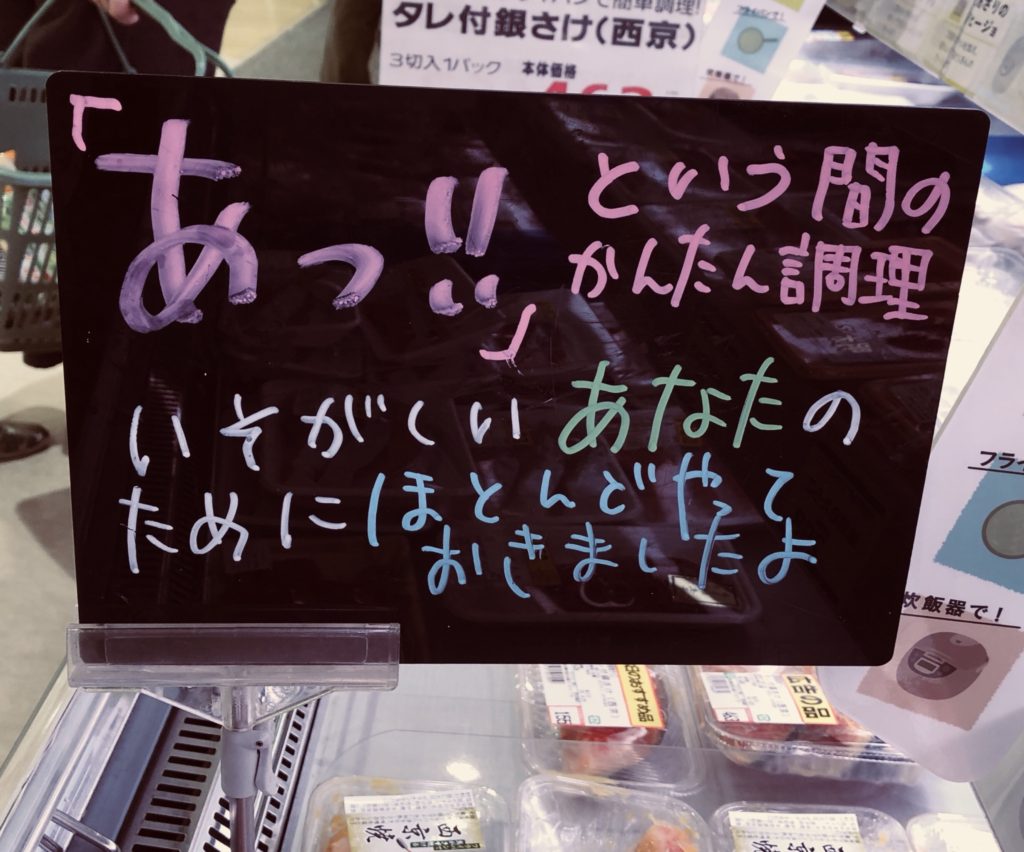 で簡単調理!
タレ付銀さけ(西京)
3切入1パック 本体価格
「あっ!!」という間の
かんたん調理
いそがくい あなたの
ために ほとんどやって
おきましたよ
フライ
炊飯器で!
のおすすめ品
西京焼
西京焼